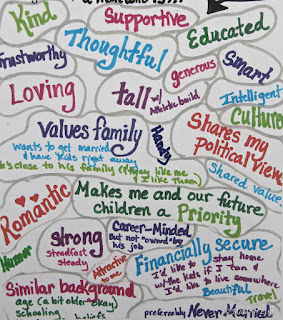 Kind
Supportive
Educated
Trustworthy
Thoughtful
generous
Smart
Loving
tall w/
Athletic build
Intelligent
Cultured
Values family
wants to get married
& have kids right away
close to his family (if they like me
& I like them)
Handy
Shares my
political views
Shared values
Romantic
Makes me and our future
children a Priority
Strong
Steadfast
steady
Career-Minded
but not "owned" by
his job
Humor
Attractive
to me
Financially secure
I'd like to stay home
w/ the kids if I can &
I'd like to live somewhere
Beautiful
Travel
Similar background
age (a bit older okay)
schooling
beliefs
preferably Never Married